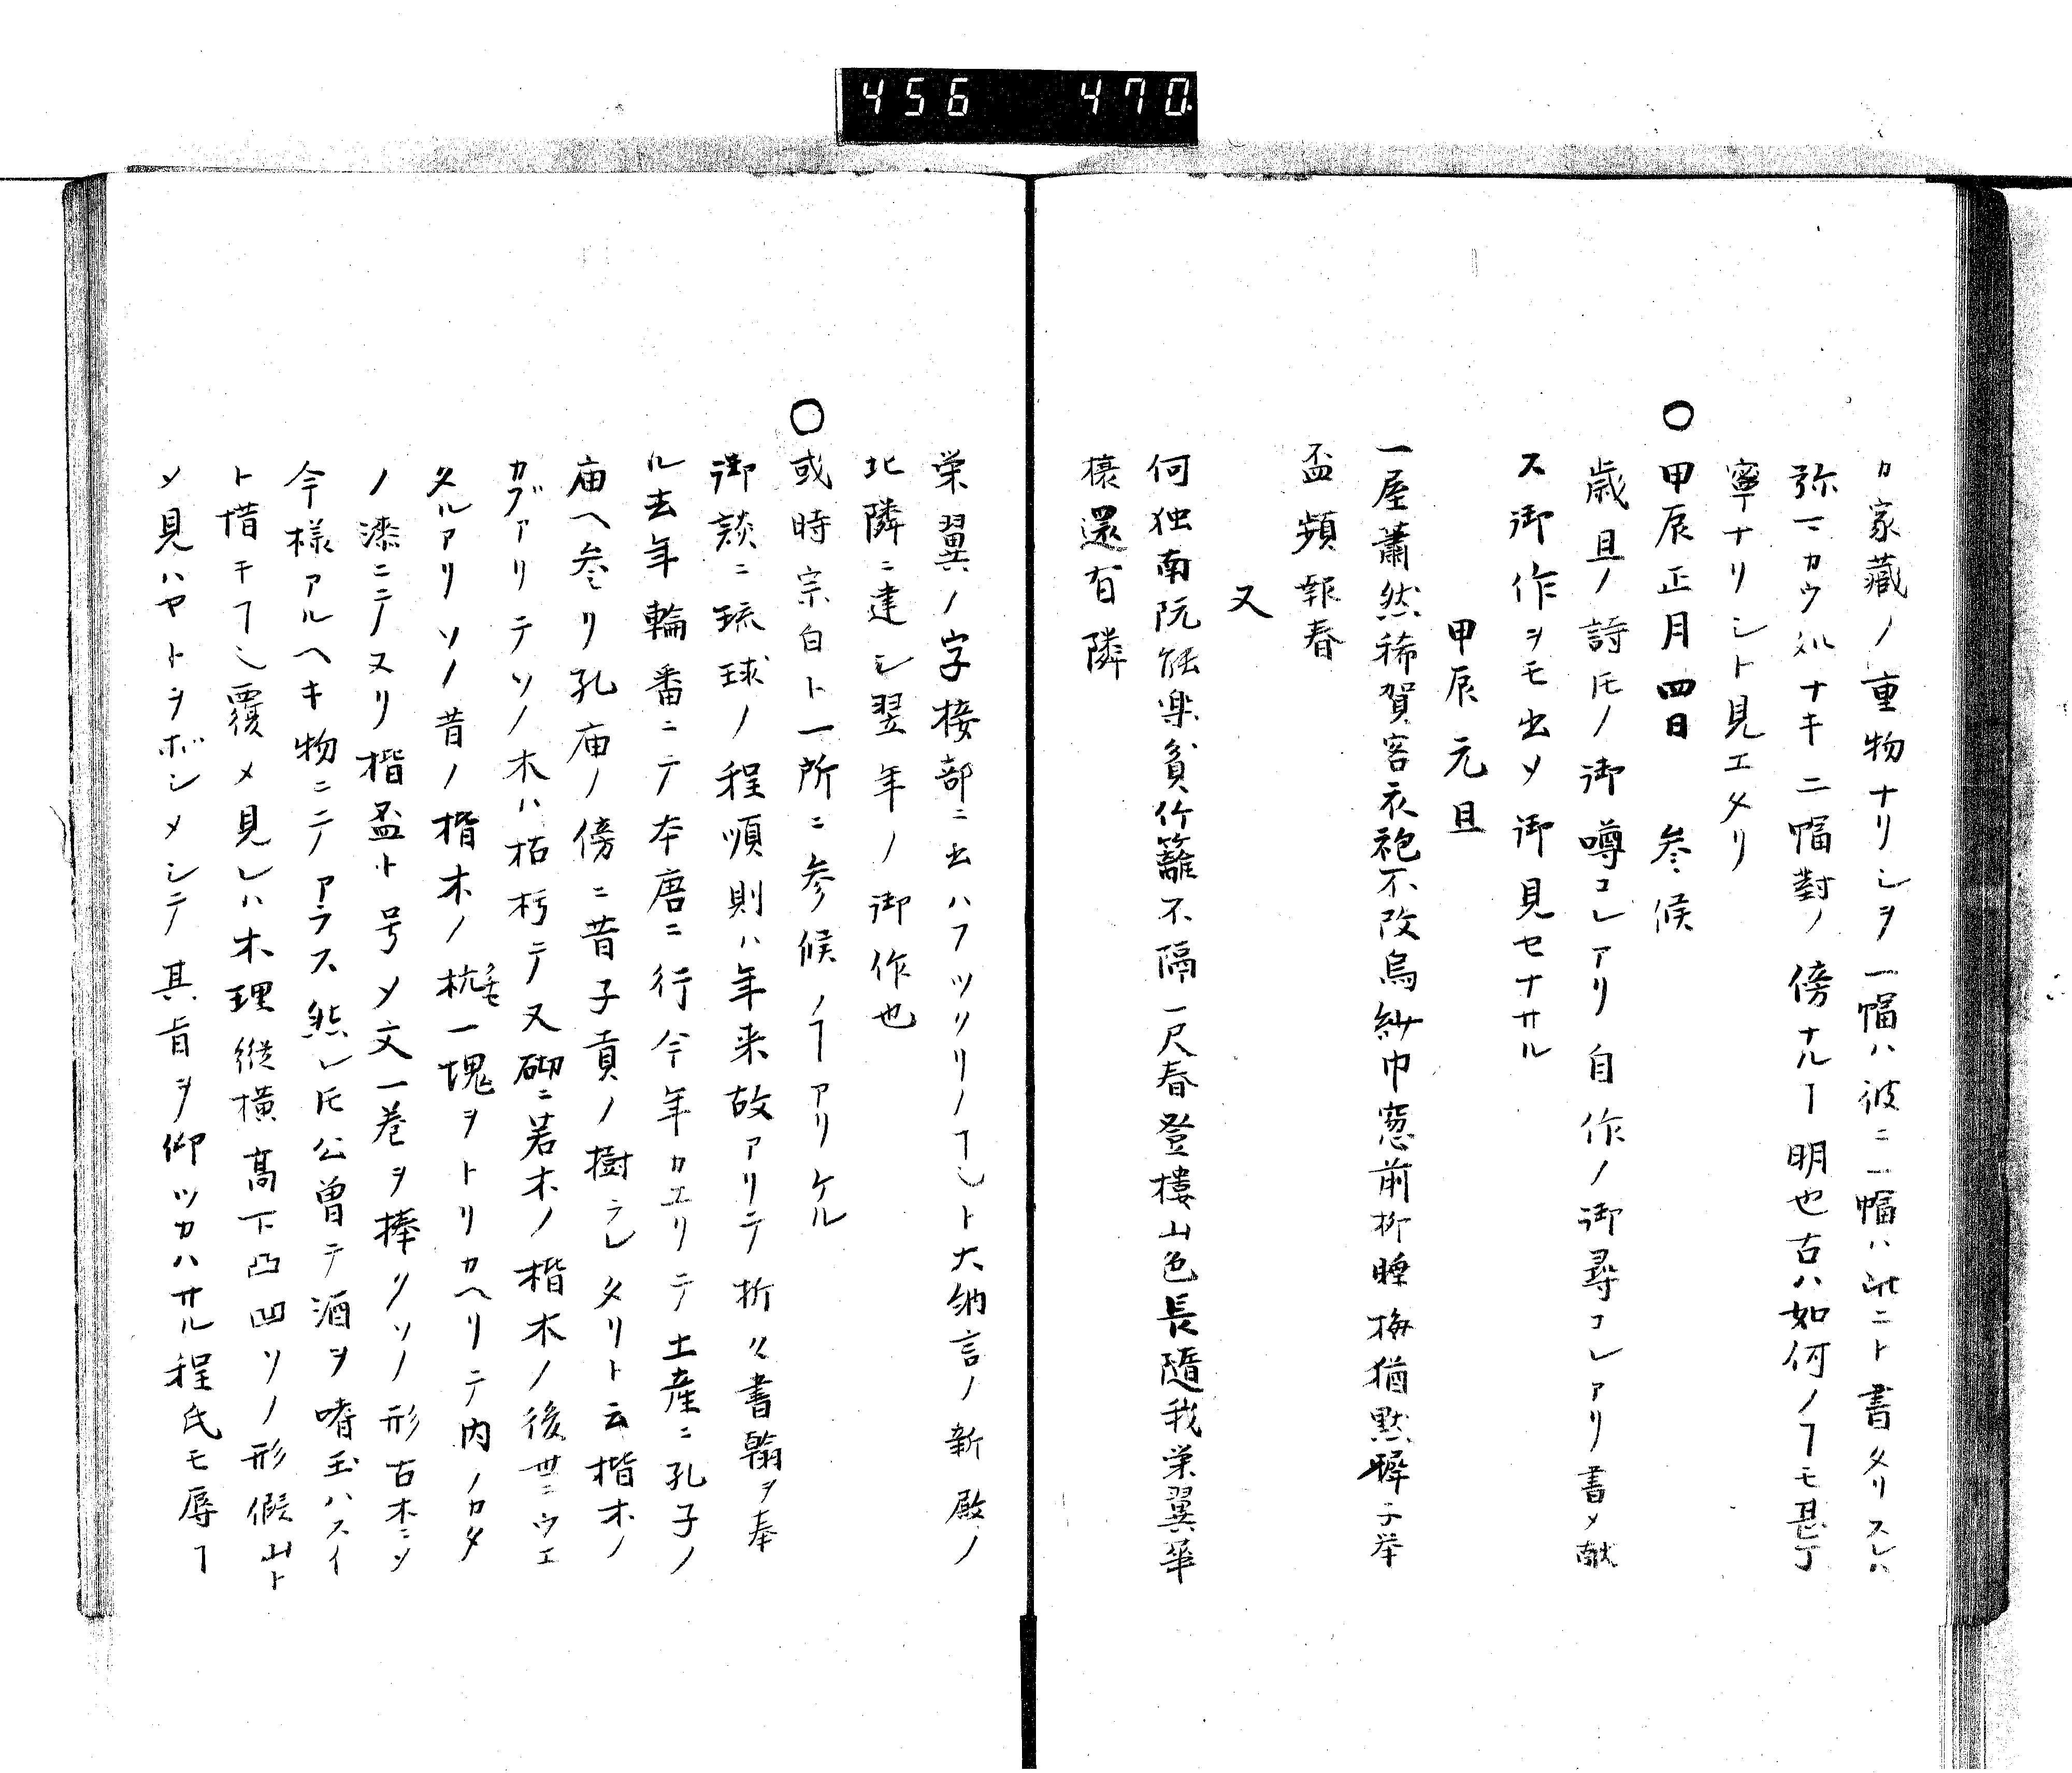 456 470
カ家藏ノ重物ナリシヲ一幅ハ彼ニ一幅ハ此ニト書タリスレハ
弥マカウ処ナキ二幅對ノ傍ナルヿ明也古ハ如何ノヿモ甚丁
寧ナリシト見エタリ
〇甲辰正月四日 参候
歳旦ノ詩𪜈ノ御噂コレアリ自作ノ御尋コレアリ書メ献
ス御作ヲモ出〆御見セナサル
甲辰元旦
一屋蕭然稀賀客衣袍不改烏紗巾窓前柳睡梅猶黙
盃頻報春
又
何独南阮能楽貧竹籬不隔一尺春登樓山色長随我栄翼華
榱還有隣
栄翼ノ字接部ニ出ハフツリリノヿ也ト大納言ノ新殿ノ
北隣ニ建シ翌年ノ御作也
〇或時宗白ト一所ニ参候ノヿアリケル
御談ニ琉球ノ程順則ハ年来故アリテ折々書翰ヲ奉
ル去年輪番ニテ本唐ニ行今年カエリテ土産ニ孔子ノ
庙ヘ参リ孔庙ノ傍ニ昔子貢ノ樹ラレタリト云楷木ノ
カブアリテソノ木ハ枯朽テ又砌ニ若木ノ楷木ノ後世ニウエ
タルアリソノ昔ノ楷木ノ杭一塊ヲトリカヘリテ内ノカタ
ノ漆ニテヌリ楷盃ト号〆文一巻ヲ捧クソノ形古木ニ〆
今様アルヘキ物ニテアラス然レ𪜈公曽テ酒ヲ嗜玉ハスイ
ト惜キヿ也覆〆見レハ木理縦横高下凸凹ソノ形假山ト
〆見ハヤトヲボシメシテ其旨ヲ仰ツカハサル程氏モ辱ヿ